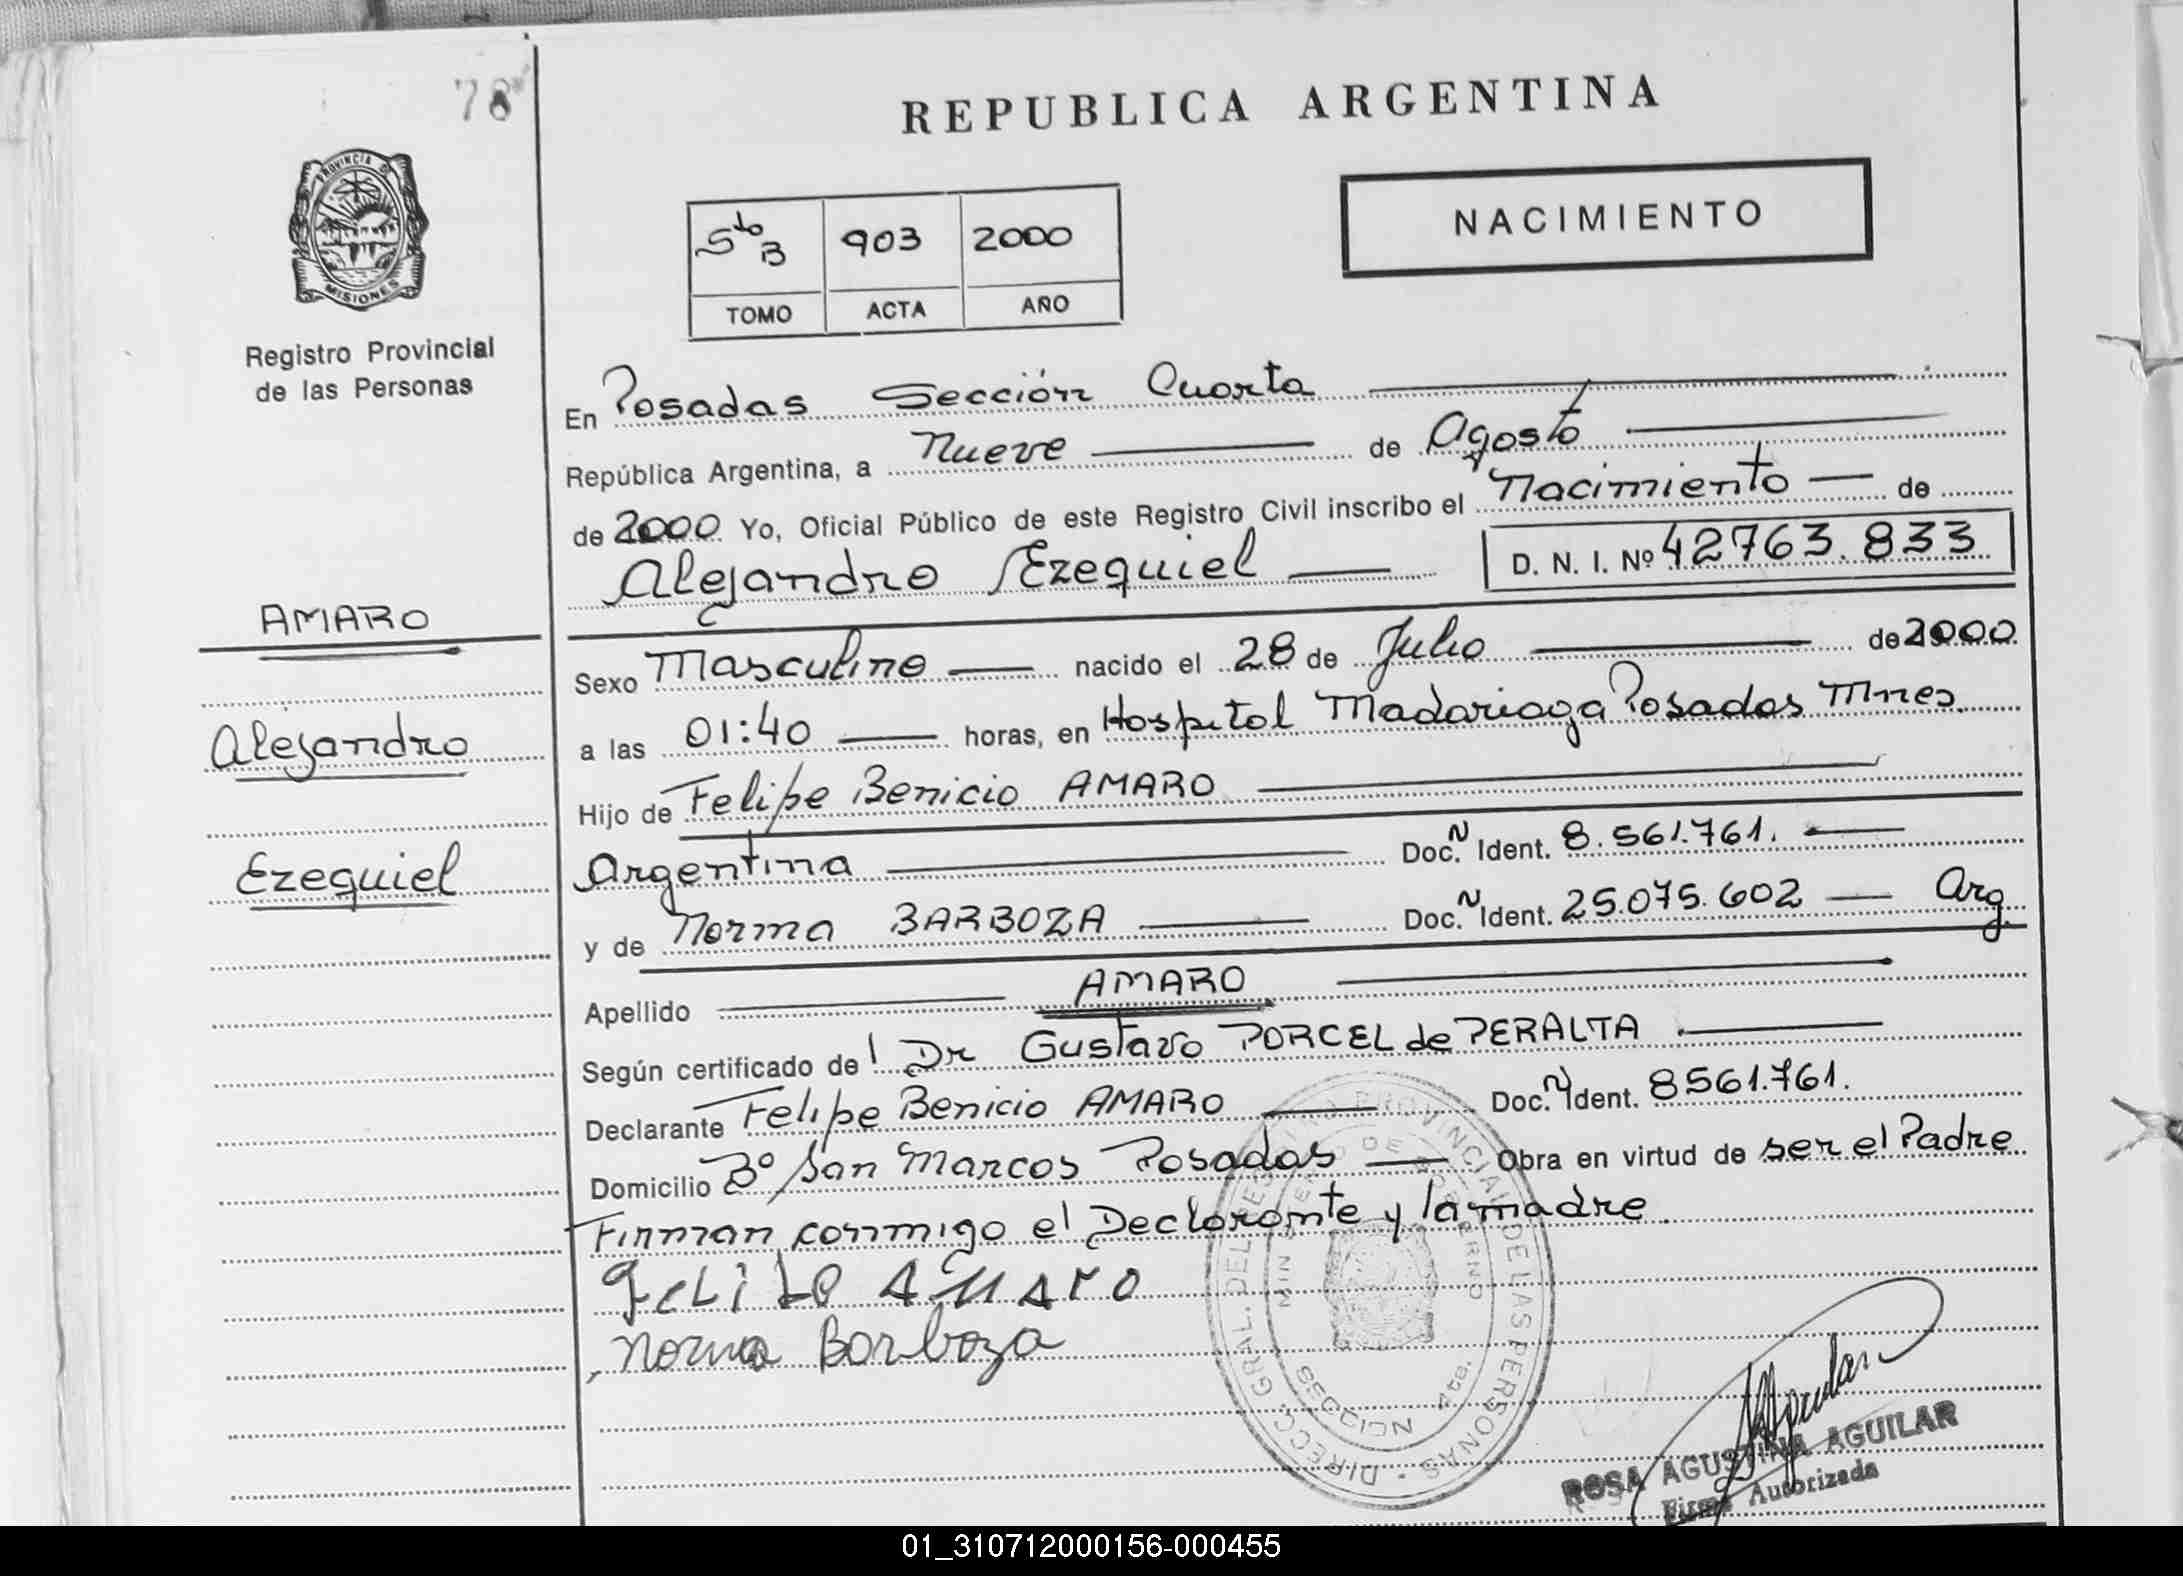 78
REPUBLICA ARGENTINA
NACIMIENTO
5to B 903 2000
TOMO ACTA AÑO
PROVINCIA DE
MISIONES
Registro Provincial
de las Personas
En Posadas Sección Cuarta
República Argentina, a Nueve de Agosto
de 2000 Yo, Oficial Público de este Registro Civil inscribo el Nacimiento de
Alejandro Ezequiel D. N. I. Nº 42763.833
AMARO
Alejandro
Ezequiel
Sexo Masculino nacido el 28 de Julio de 2000.
a las 01:40 horas, en Hospital Madariaga Posadas Mnes.
Hijo de Felipe Benicio AMARO
Argentina Doc. N Ident. 8.561.761.
y de Norma BARBOZA Doc. N Ident. 25.075.602 Arg.
Apellido AMARO
Según certificado del Dr Gustavo PORCEL de PERALTA
Declarante Felipe Benicio AMARO Doc. N Ident. 8561.761.
Domicilio Bº San Marcos Posadas Obra en virtud de ser el Padre
Firman conmigo el Declarante y la madre.
FeLiPe AMArO
Norma Barboza
DIRECC. GRAL. DEL REGISTRO PROVINCIAL DE LAS PERSONAS
MINISTERIO DE GOBIERNO
SECCION 4ta.
ROSA AGUSTINA AGUILAR
Firma Autorizada
01_310712000156-000455